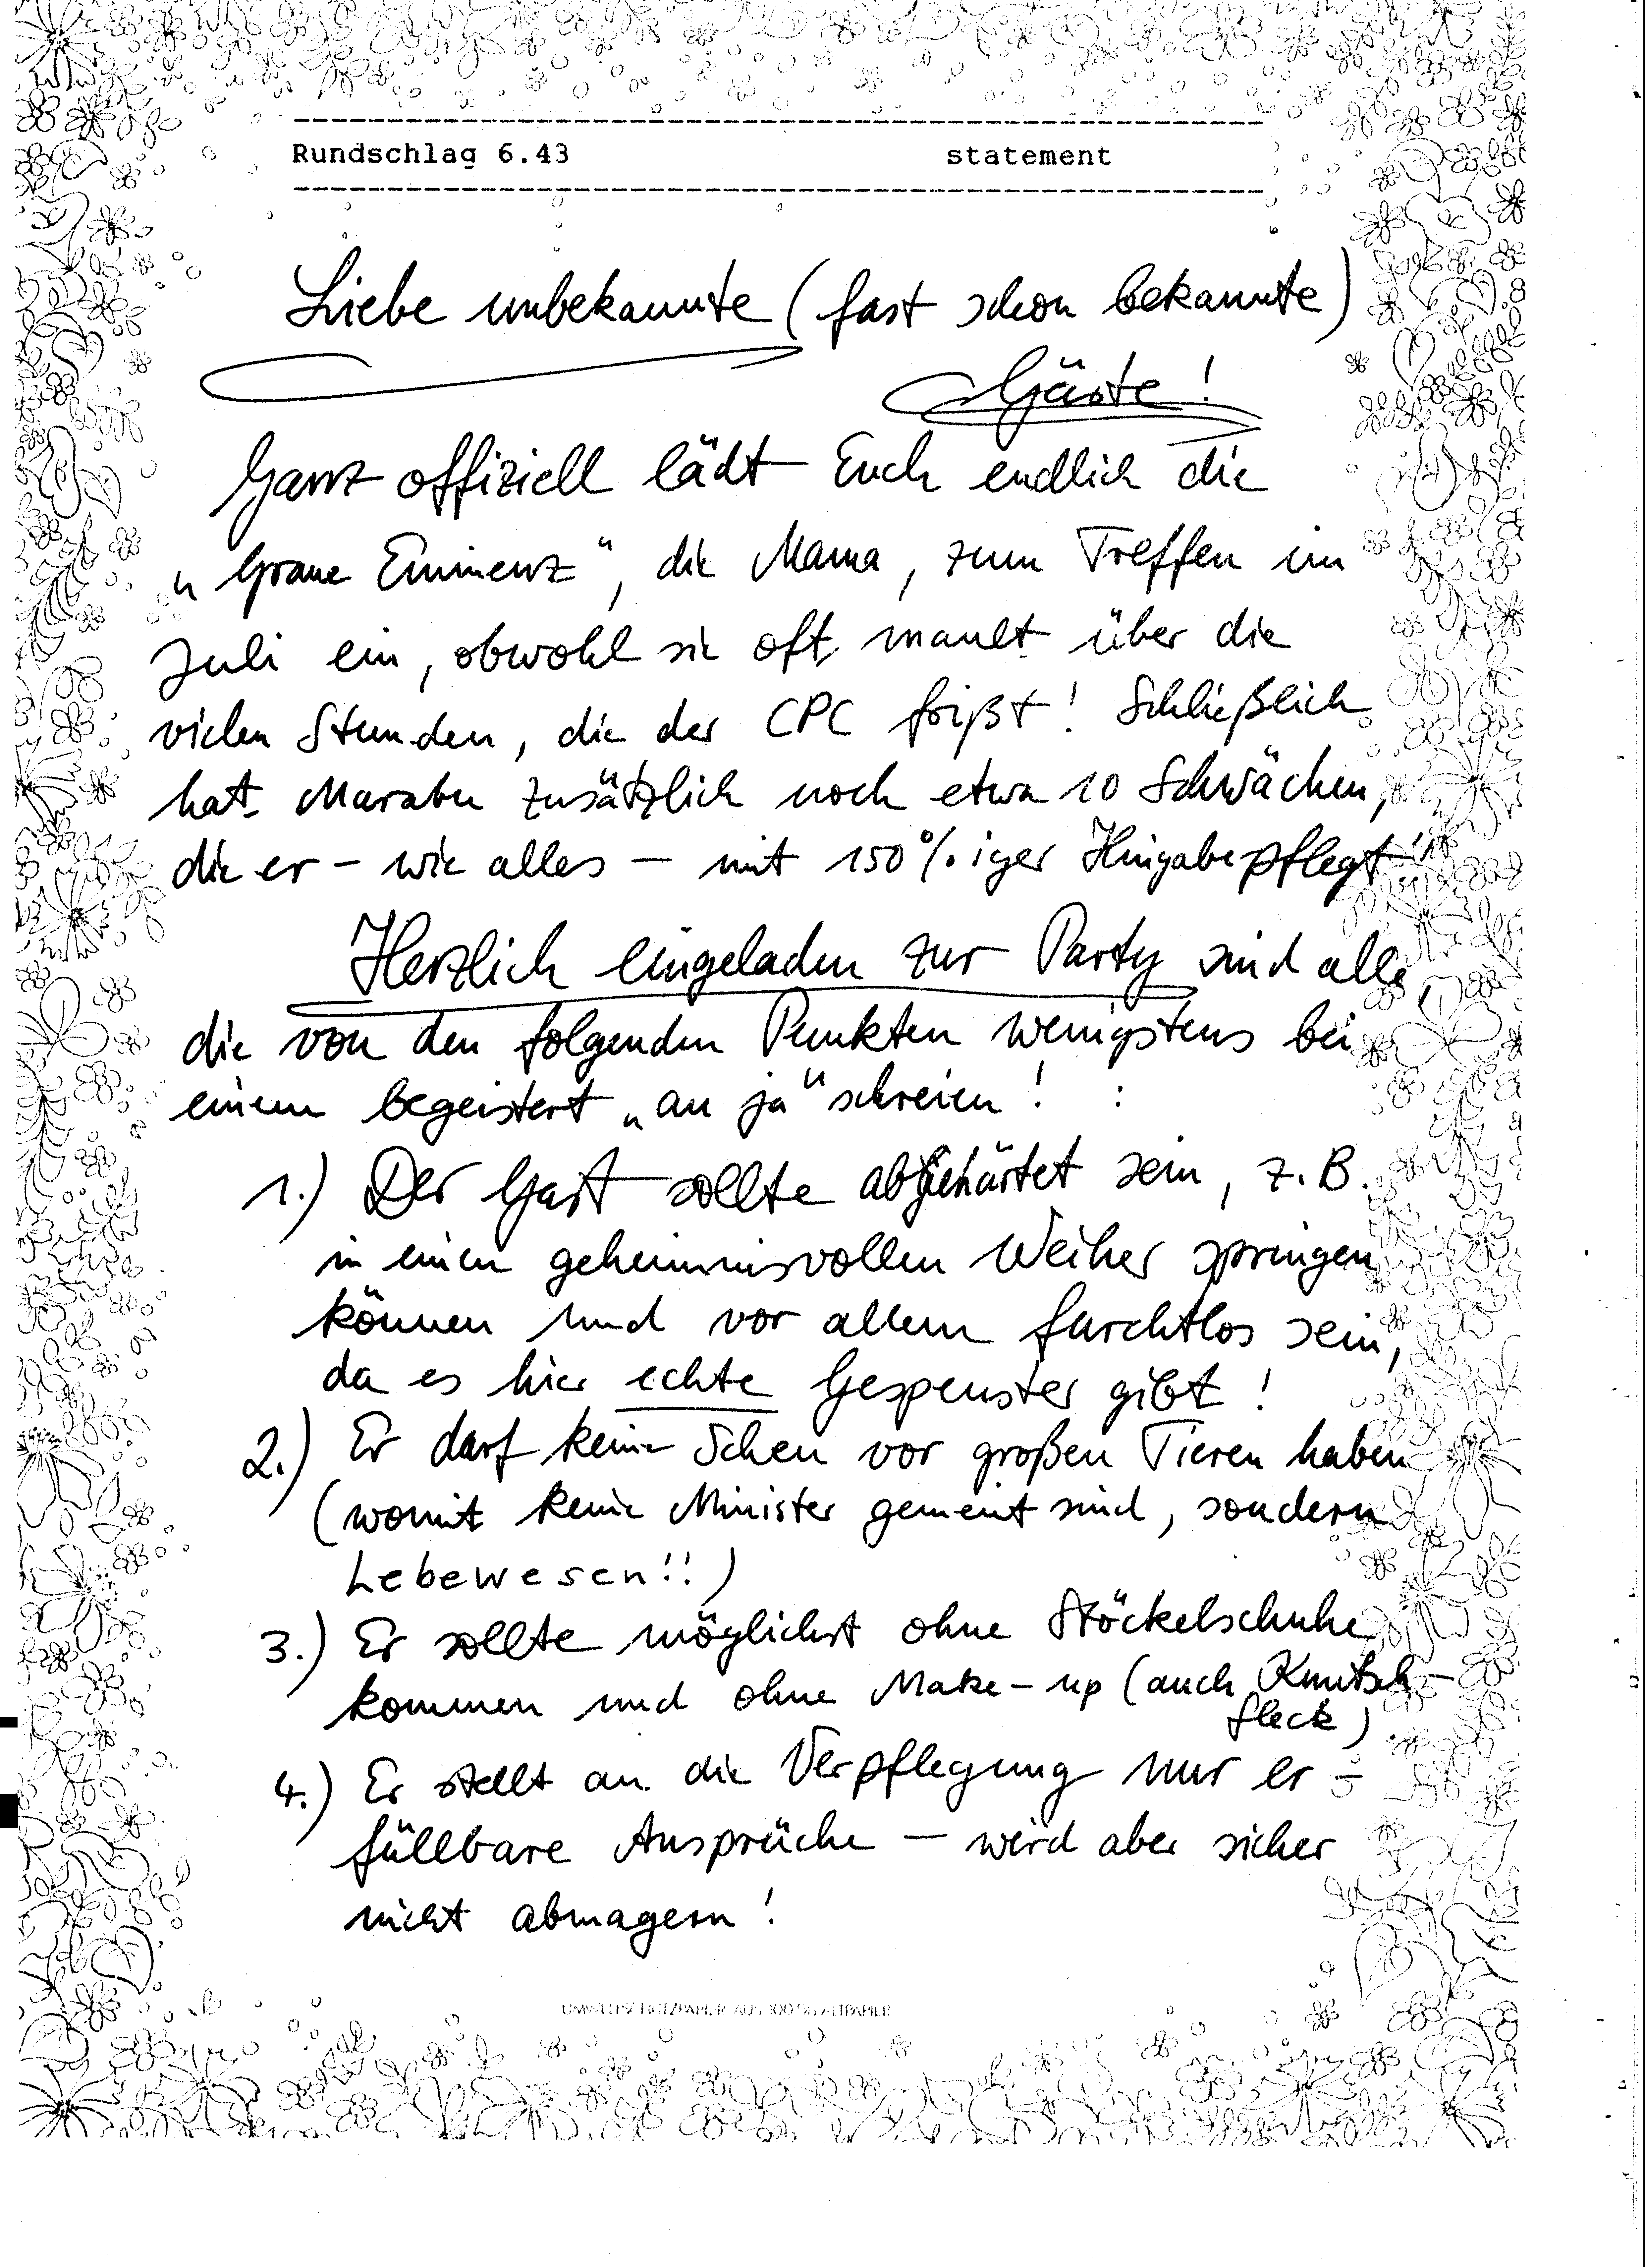 Rundschlag 6.43 statement
Liebe unbekannte (fast schon bekannte)
Gäste!
Ganz offiziell lädt Euch endlich die
„Graue Eminenz“, die Mama, zum Treffen im
Juli ein, obwohl sie oft mault über die
vielen Stunden, die der CPC frißt! Schließlich
hat Marabu zusätzlich noch etwa 10 Schwächen,
die er – wie alles – mit 150%iger Hingabe pflegt!
Herzlich eingeladen zur Party sind alle,
die von den folgenden Punkten wenigstens bei
einem begeistert „au ja“ schreien! :
1.) Der Gast sollte abgehärtet sein, z.B.
in einen geheimnisvollen Weiher springen
können und vor allem furchtlos sein,
da es hier echte Gespenster gibt!
2.) Er darf keine Scheu vor großen Tieren haben
(womit keine Minister gemeint sind, sondern
Lebewesen!!)
3.) Er sollte möglichst ohne Stöckelschuhe
kommen und ohne Make-up (auch Knutsch-
fleck)
4.) Er stellt an die Verpflegung nur er-
füllbare Ansprüche – wird aber sicher
nicht abmagern!
UMWELTSCHUTZPAPIER AUS 100% ALTPAPIER